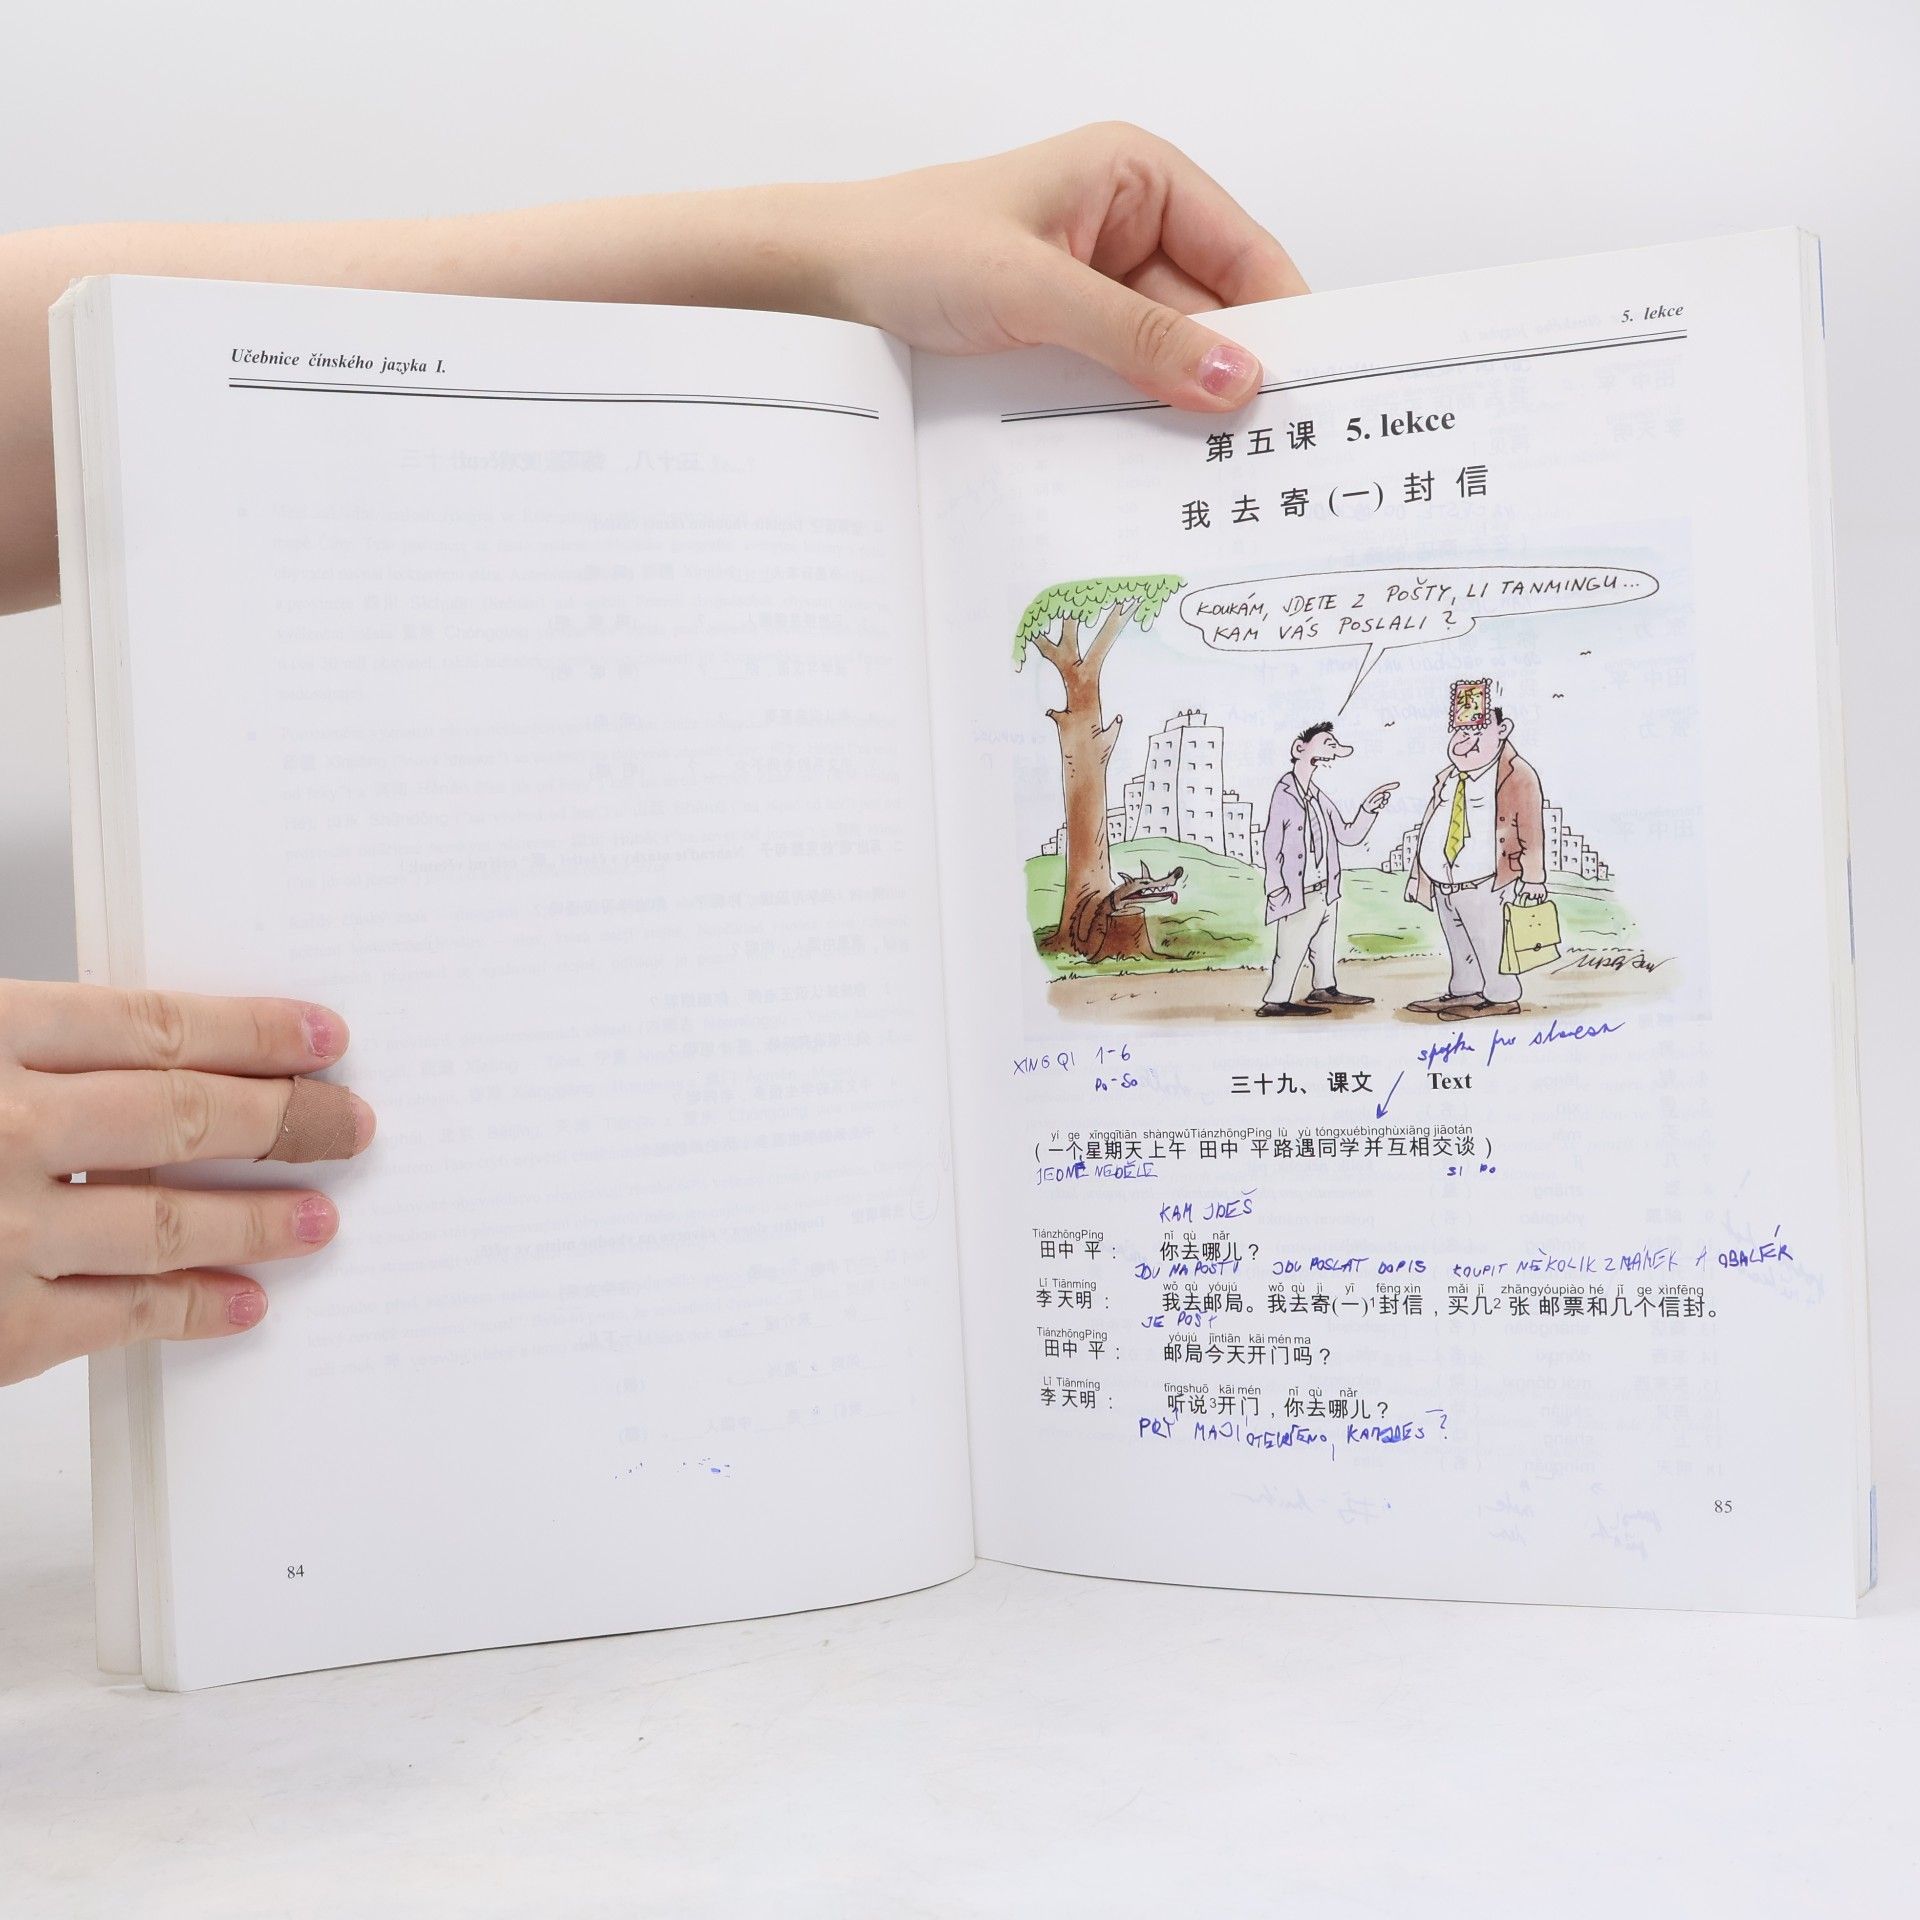 Učebnice čínského jazyka I.
84
5. lekce
第五课 5. lekce
我去寄(一)封信
KOUKÁM, JDETE Z POŠTY, LI TANMINGU...
KAM VÁS POSLALI?
XING QI 1-6
Po-So
spojka pro slovesa
三十九、 课文 Text
yí ge xīngqītiān shàngwǔ TiánzhōngPíng lù yù tóngxuébìnghùxiāng jiāotán
(一个星期天上午 田中 平路遇同学并互相交谈)
JEDNÉ NEDĚLE
KAM JDEŠ
TiánzhōngPíng nǐ qù nǎr
田中 平: 你去哪儿?
JDU NA POŠTU JDU POSLAT DOPIS KOUPIT NĚKOLIK ZNÁMEK A OBÁLEK
Lǐ Tiānmíng wǒ qù yóujú wǒ qù jì yī fēng xìn mǎi jǐ zhāngyóupiào hé jǐ ge xìnfēng
李 天明: 我去邮局。我去寄(一)¹封信,买几² 张 邮票和几个信封。
JE POŠT
TiánzhōngPíng yóujú jīntiān kāi mén ma
田中 平: 邮局今天开门吗?
Lǐ Tiānmíng tīngshuō kāi mén nǐ qù nǎr
李 天明: 听说³开门,你去哪儿?
PRÝ MAJÍ OTEVŘENO, KAM JDEŠ?
85